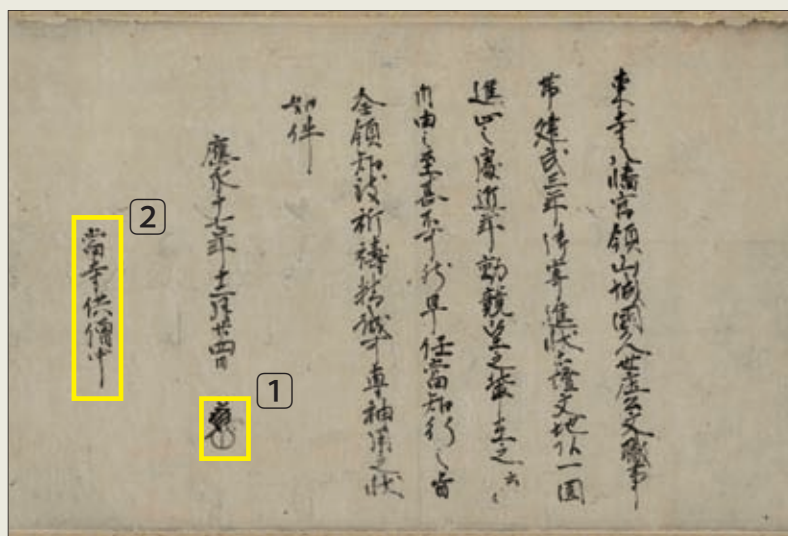 東寺八幡宮領山城國久世庄公文職事
帯建武三年御寄進状證文地一圓
進止之處近年動競望之輩在之云々
自由之至甚不可然早任當知行之旨
全領知致祈禱精誠可専神用之状
如件
應永十七年十二月廿四日
1
當寺供僧中
2